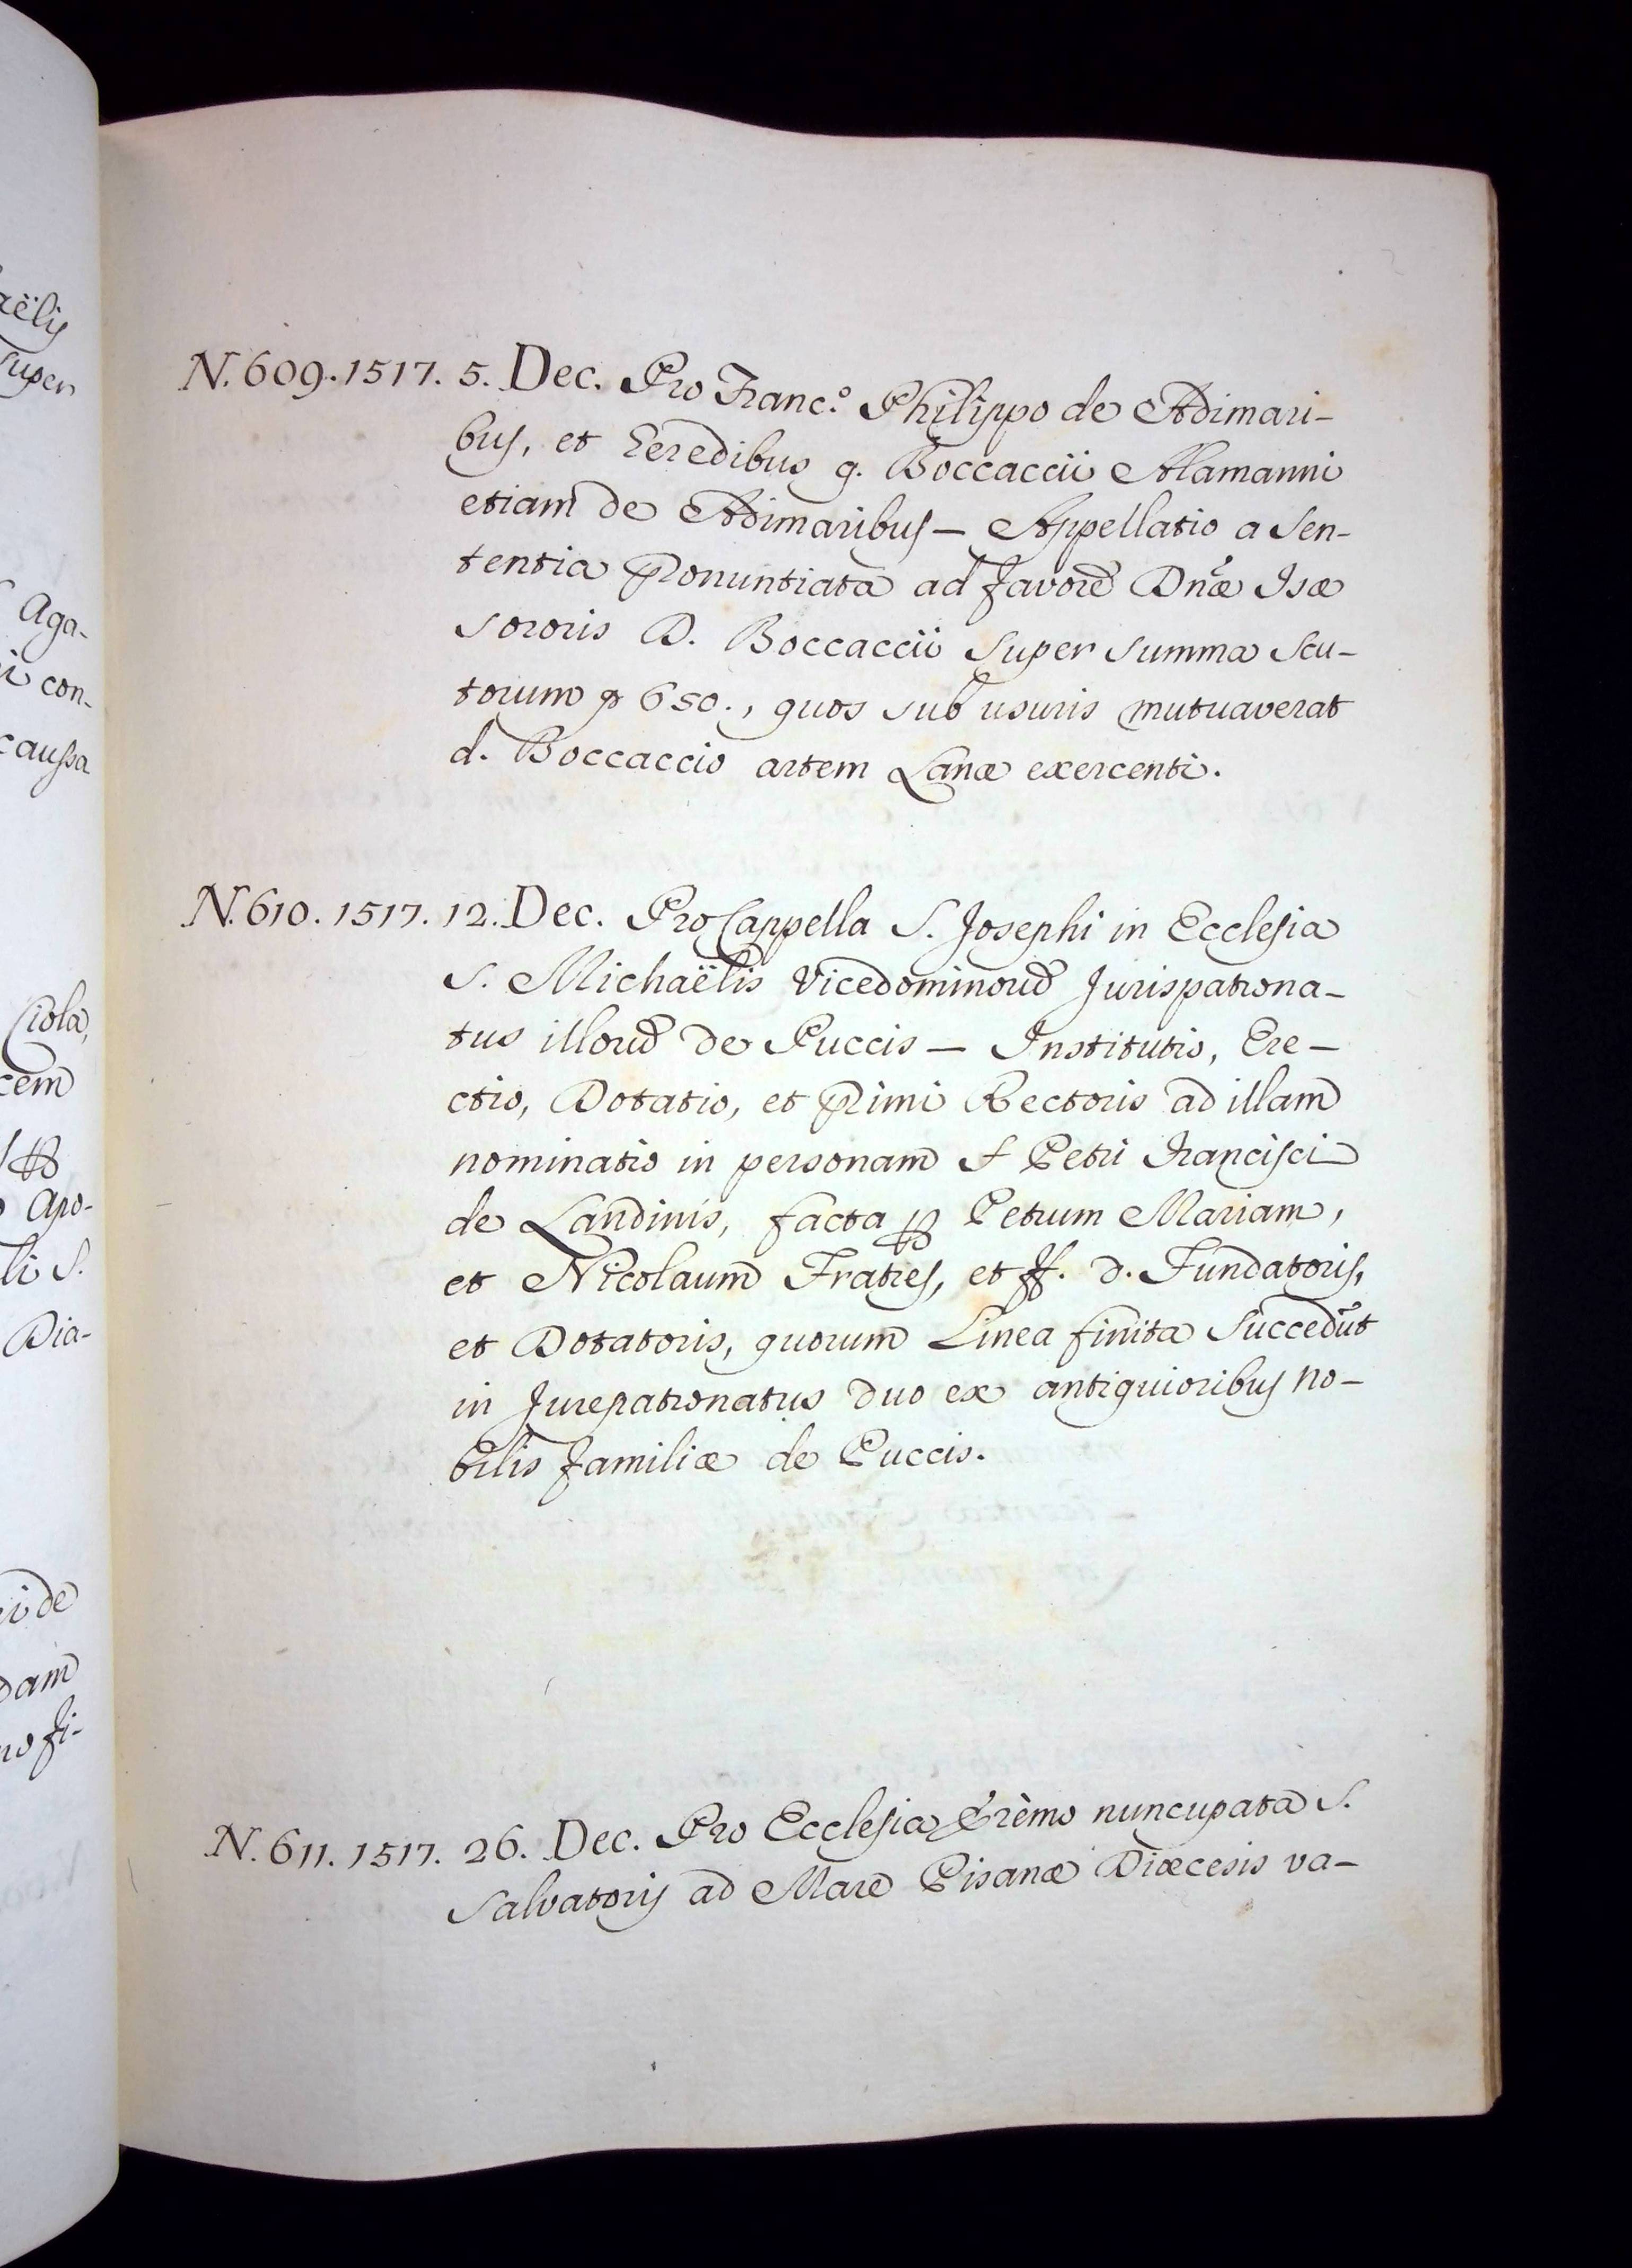 N. 609. 1517. 5. Dec. Pro Franc.º Philippo de Adimari-
bus, et Heredibus q. Boccaccii Alamanni
etiam de Adimaribus — Appellatio a Sen-
tentia Pronuntiata ad favorẽ Dnæ Isæ
Sororis D. Boccaccii Super Summa Scu-
torum 650., quos sub usuris mutuaverat
d. Boccaccio artem Lanæ exercenti.
N. 610. 1517. 12. Dec. Pro Cappella S. Josephi in Ecclesia
S. Michaëlis Vicedominorũ Jurispatrona-
tus illorũ de Puccis — Institutio, Ere-
ctio, Dotatio, et Primi Rectoris ad illam
nominatio in personam S Petri Francisci
de Landinis, facta ꝑ Petrum Mariam,
et Nicolaum Fratres, et ff. d. Fundatoris,
et Dotatoris, quorum Linea finita Succedũt
in Jurepatronatus duo ex antiquioribus no-
bilis familiæ de Puccis.
N. 611. 1517. 26. Dec. Pro Ecclesia Erèmo nuncupata S.
Salvatoris ad Mare Pisanæ Diœcesis va-
super
Aga-
con-
caussa
Apo-
S.
Dia-
de
fi-